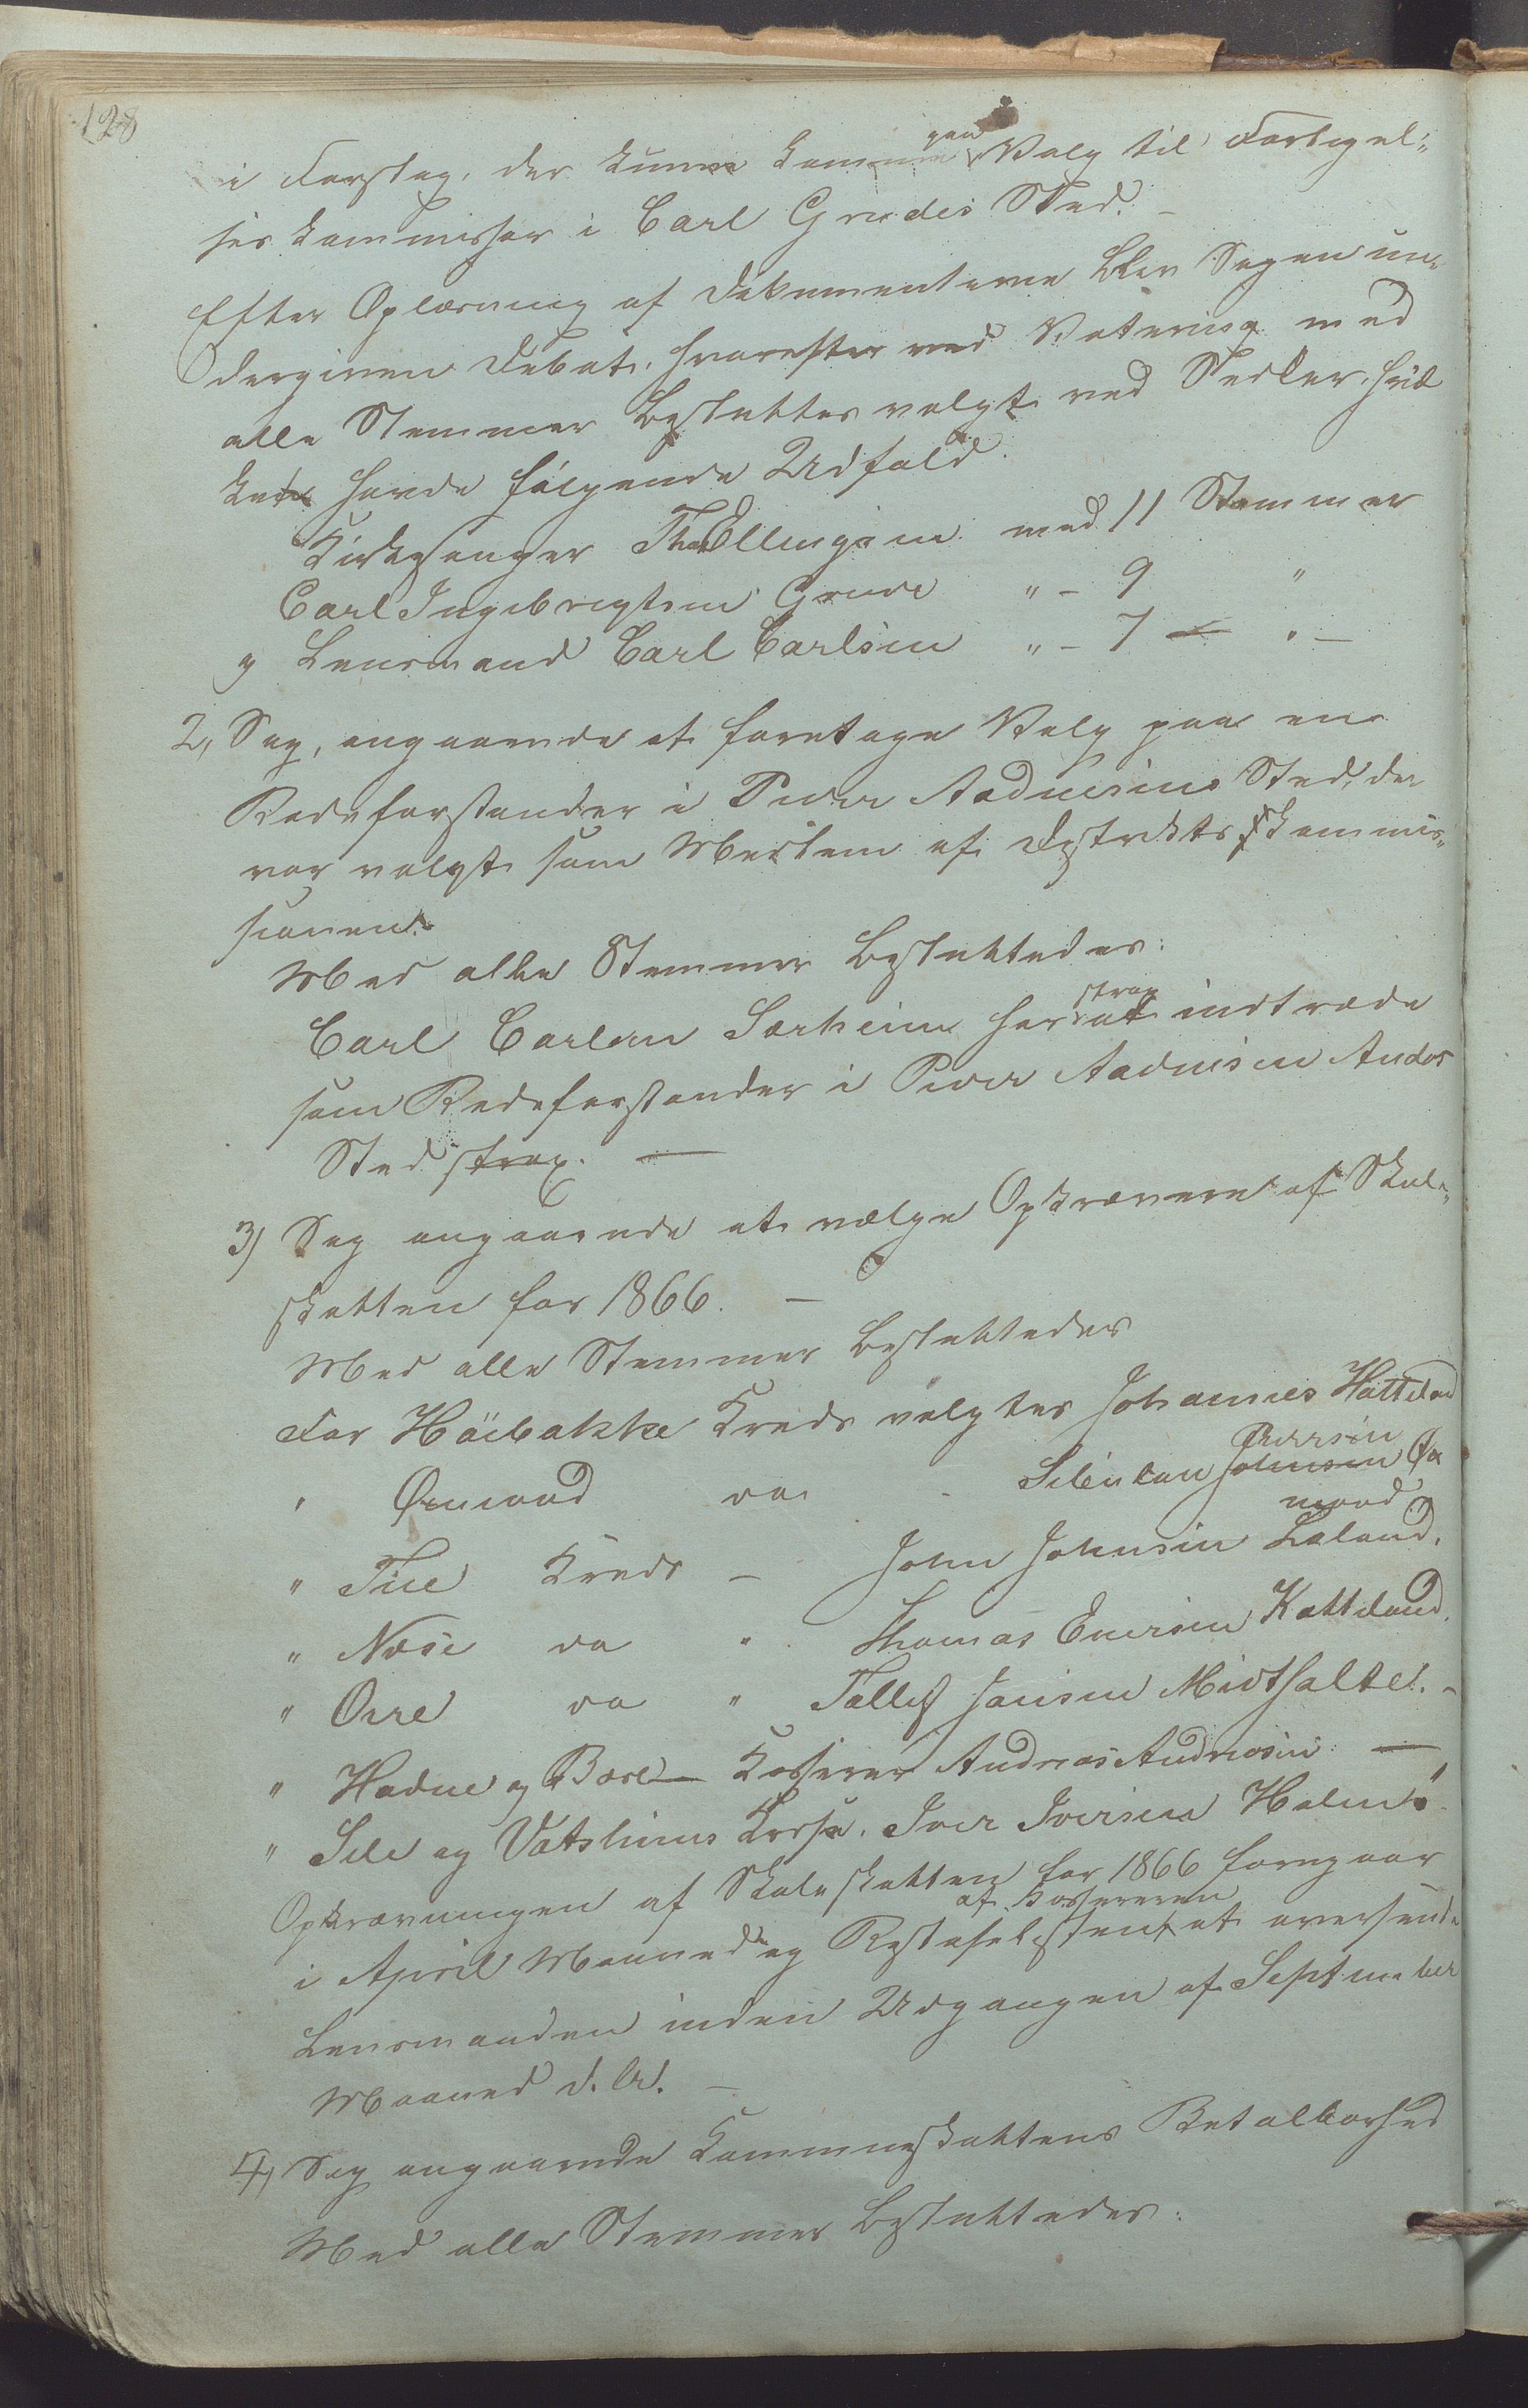 128
i Forslag, der kunne komme paa Valg til Forligel=
ses kommissær i Carl Grudes Sted. –
Efter Oplæsning af Dokumenterne blev Sagen un=
dergiven Debat, hvorefter ved Votering med
alle Stemmer besluttes valgt ved Sedler, hvil
ket havde følgende Udfald.
Kirkesanger Th. Ellingsen med 11 Stemmer
Carl Ingebrigtsen Grude " – 9 "
og Lensmand Carl Carlsen " – 7 – " –
2, Sag, angaaende at foretage Valg paa en
Rodeforstander i Peder Aadnesens Sted, der
var valgt som Medlem af Distrikts kommis=
sionen.
Med alle Stemmer besluttedes:
Carl Carlsen Særheim har strax at indtræde
som Rodeforstander i Peder Aadnesen Andos
Sted strax. –
3) Sag angaaende at vælge Opkrævere af Skole=
skatten for 1866. –
Med alle Stemmer besluttedes
For Höibakke Kreds valgtes Johannes Hatteland
Pedersen
" Øxnevad do. - Johnsen Øx
nevad
" Tue Kreds – John Johnsen Laland.
" Næse do " Thomas Enersen Katteland.
" Orre do " Tollef Jansen Midthalte. –
" Hodne og Bore – Kasserer Andreas Andreasen –
" Sele og Vatshuus Kreds. Iver Iversen Holen "
Opkrævningen af Skoleskatten for 1866 foregaar
i April Maaned og Restaselisten af Kassereren at oversende
Lensmanden inden Udgangen af September
Maaned d. A. –
4, Sag angaaende Kommuneskattens Betalbarhed
Med alle Stemmer besluttedes: